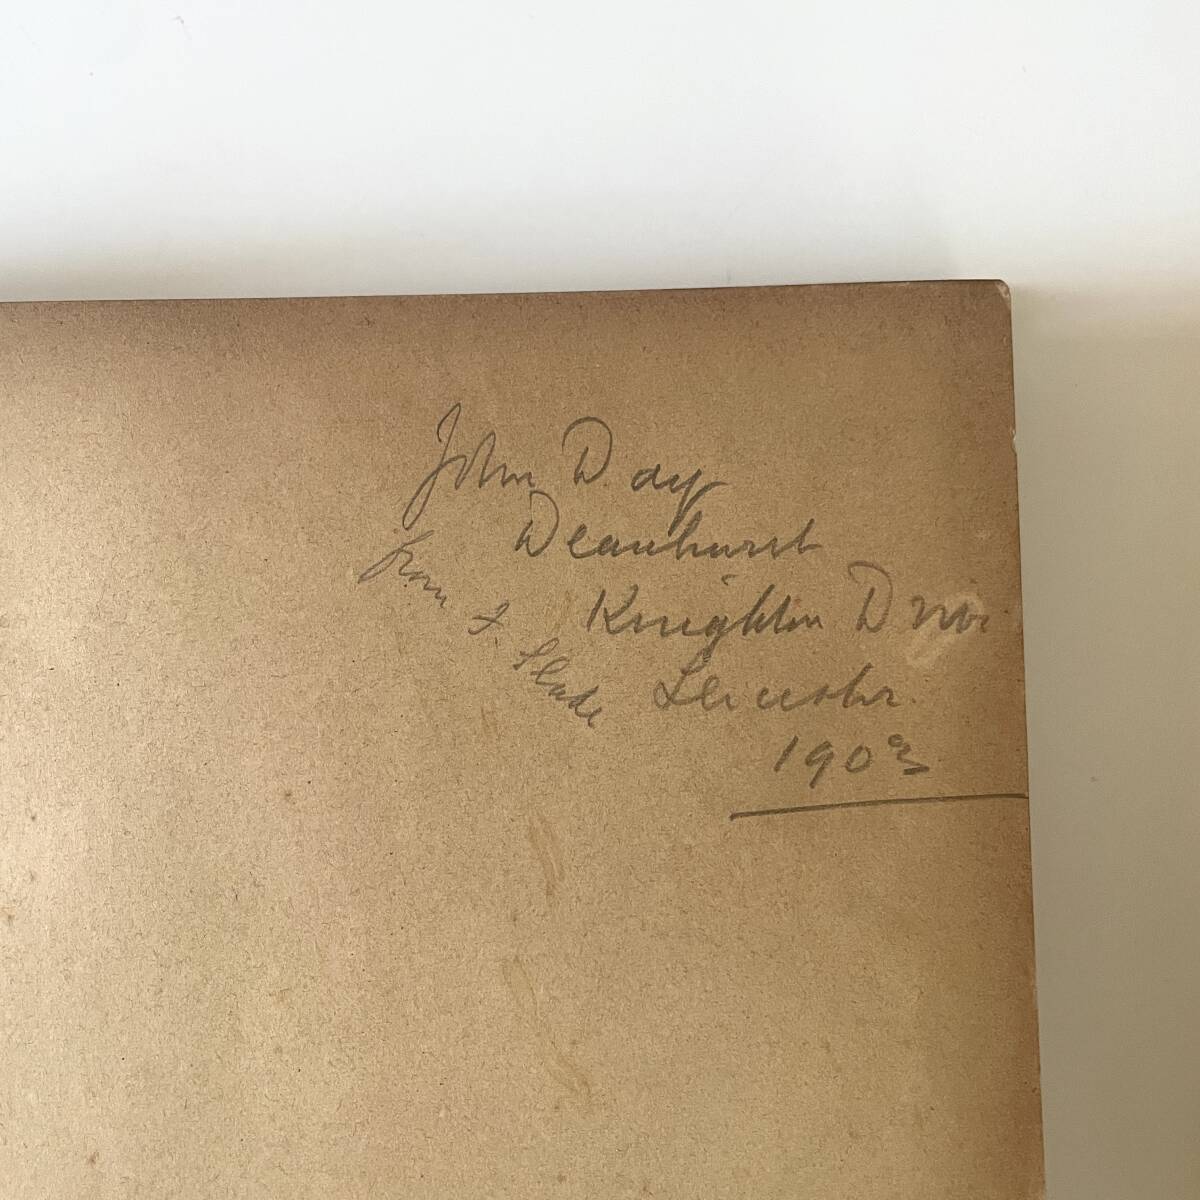 John Day
Deanhurst
Knighton Drive
Leicester.
1903
from F. Slade